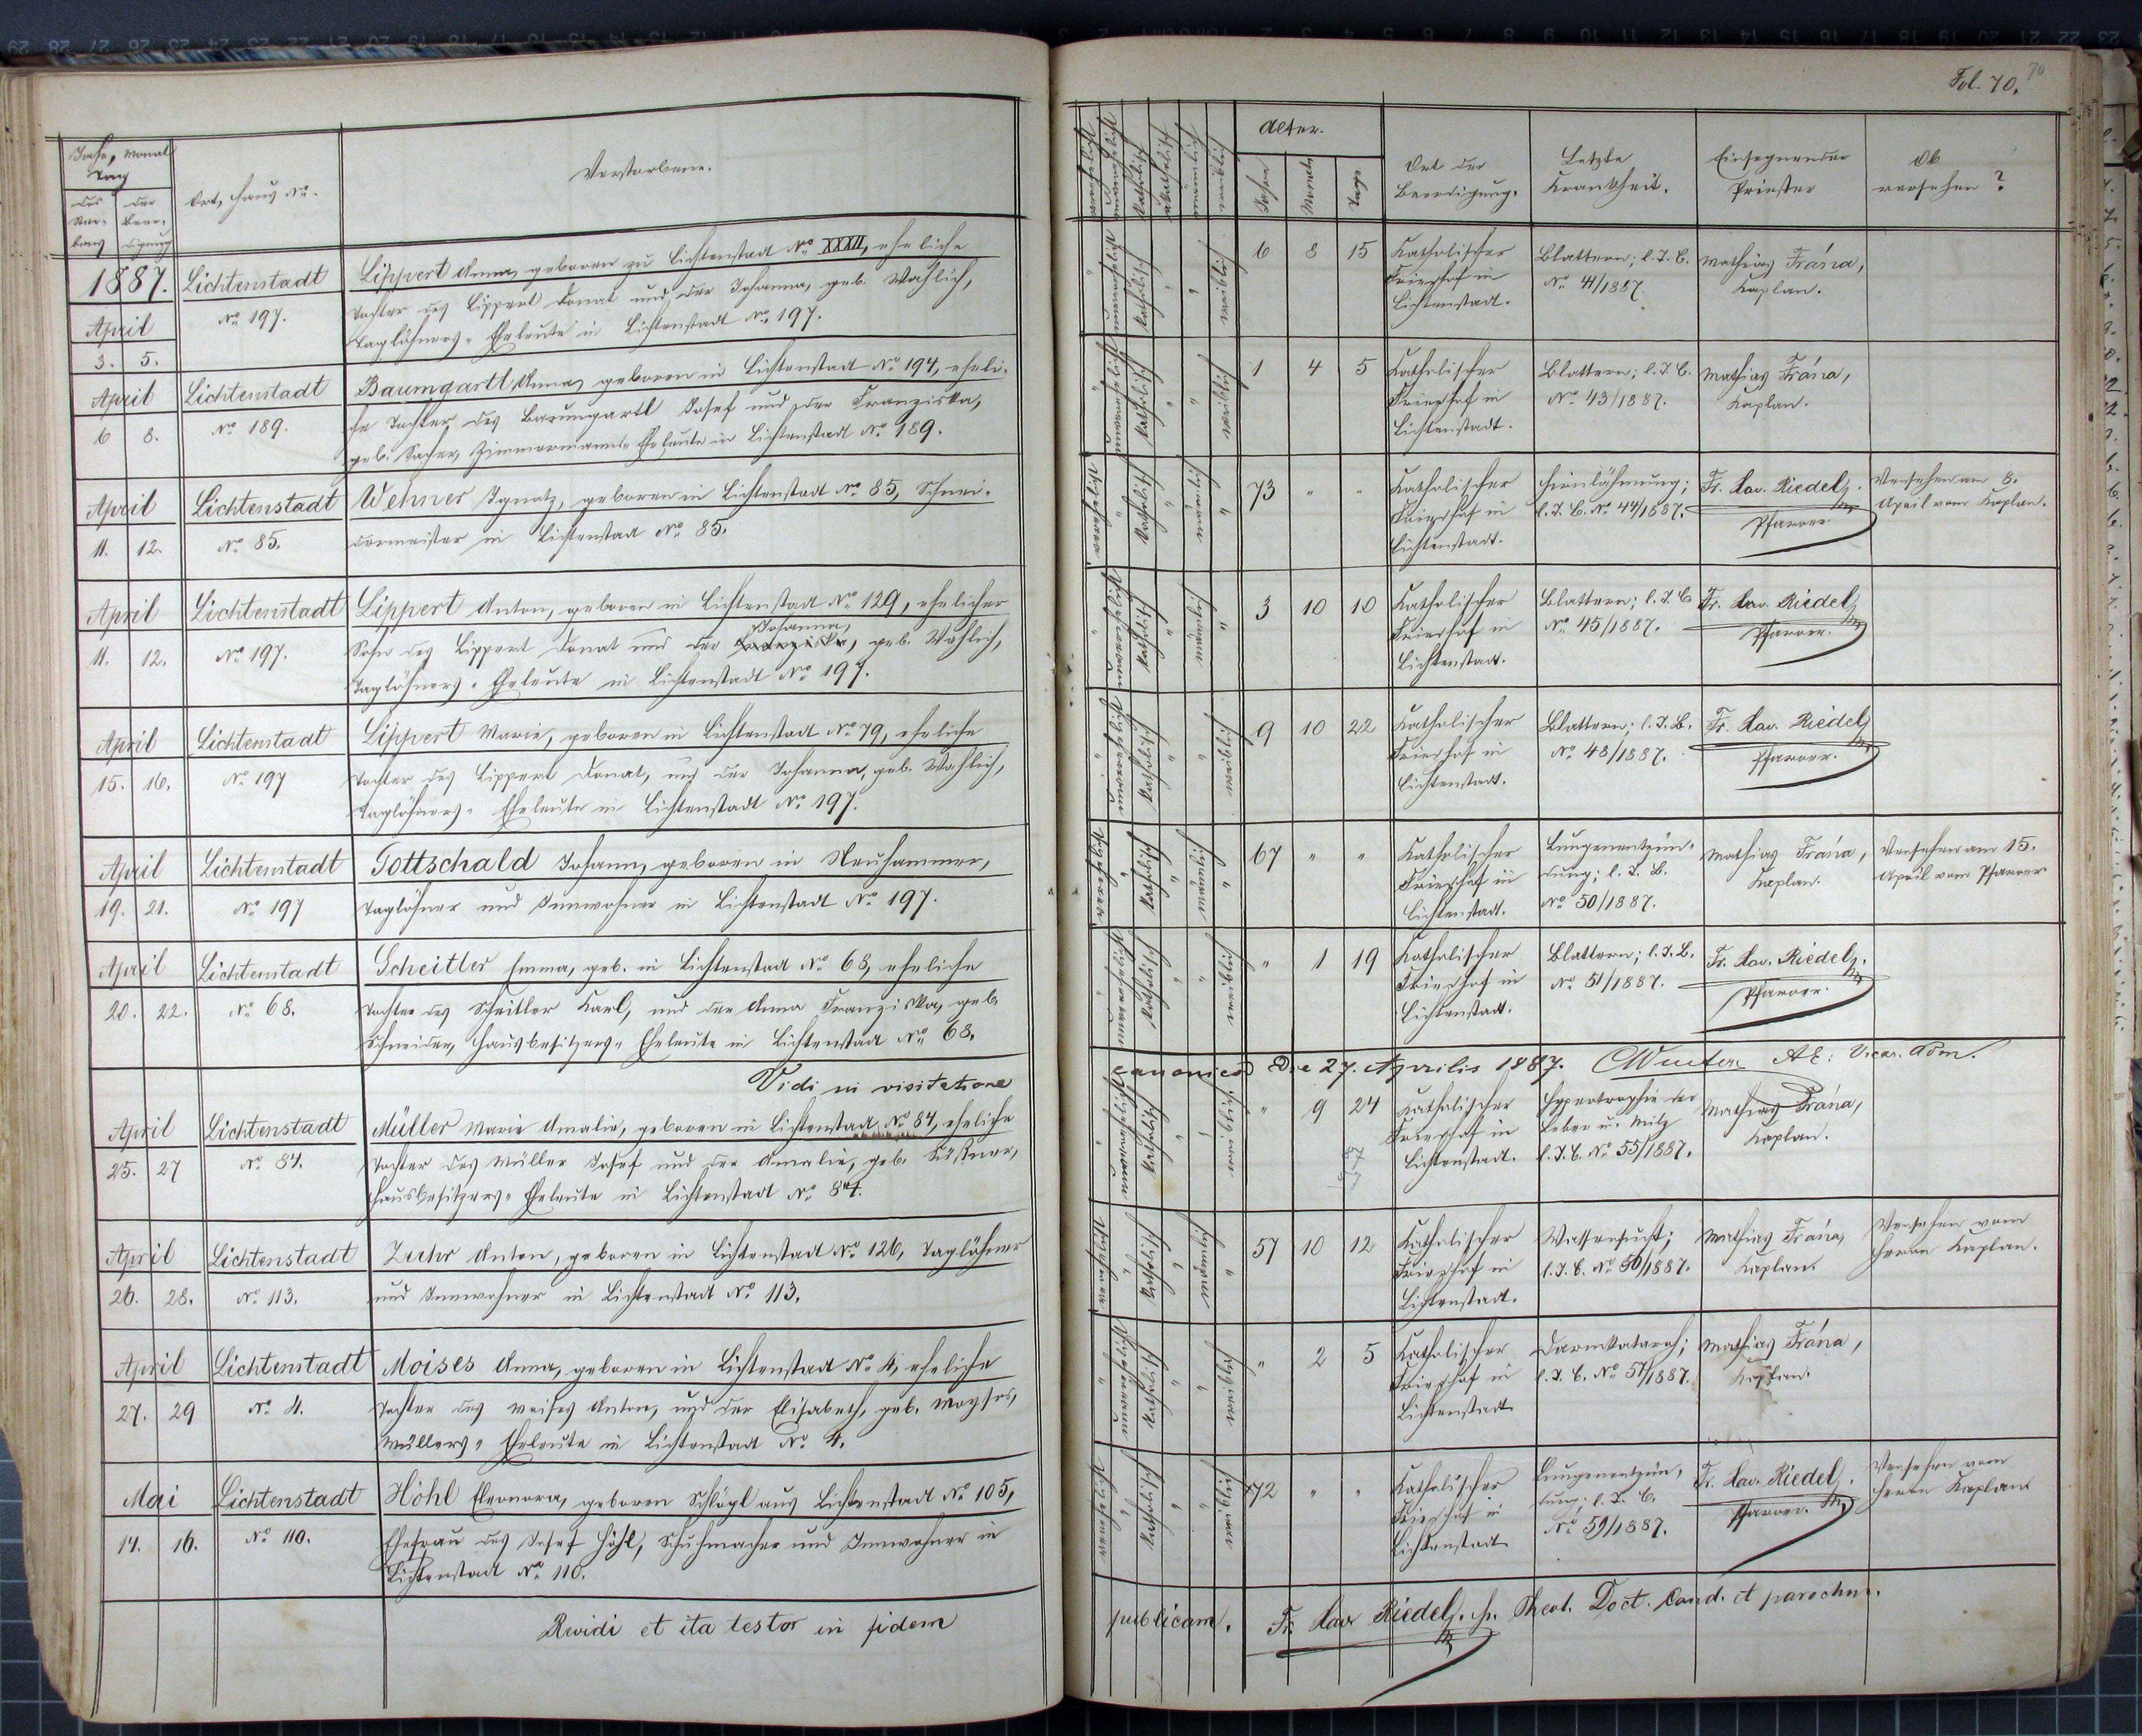 Fol. 70.
70
Jahr, Monat
Tag
des
Ster-
bens
der
Beer-
digung
Ort, Haus No.
Verstorbene.
verehelicht
unverehelicht
katholisch
akatholisch
männlich
weiblich
Alter.
Jahre
Monate
Tage
Ort der
Beerdigung.
Letzte
Krankheit.
Einsegnender
Priester
Ob
versehen?
1887.
April
3. 5.
Lichtenstadt
No 197.
Lippert Anna, geboren zu Lichtenstadt No XXXII, eheliche
Tochter des Lippert Donat und der Johanna, geb. Wohlich,
Taglöhners-Eheleute in Lichtenstadt No 197.
unverehelicht
katholisch
weiblich
6 8 15
Katholischer
Friedhof in
Lichtenstadt.
Blattern; l. T. B.
No 41/1887.
Mathias Frána,
Kaplan.
April
6 8.
Lichtenstadt
No 189.
Baumgartl Anna, geboren in Lichtenstadt No 194, eheli-
che Tochter des Baumgartl Josef und der Franziska,
geb. Sacher, Zimmermanns-Eheleute in Lichtenstadt No 189.
unverehelicht
katholisch
weiblich
1 4 5
Katholischer
Friedhof in
Lichtenstadt.
Blattern; l. T. B.
No 43/1887.
Mathias Frána,
Kaplan.
April
11. 12.
Lichtenstadt
No 85.
Wehner Ignatz, geboren in Lichtenstadt No 85, Schnei-
dermeister in Lichtenstadt No 85.
verehelicht
katholisch
männlich
73 " "
Katholischer
Friedhof in
Lichtenstadt.
Hirnlähmung;
l. T. B. No 44/1887.
Fr. Xav. Riedel,
Pfarrer.
Versehen am 8.
April vom Kaplan.
April
11. 12.
Lichtenstadt
No 197.
Lippert Anton, geboren in Lichtenstadt No 129, ehelicher
Johanna,
Sohn des Lippert Donat und der Franziska, geb. Wohlich,
Taglöhners-Eheleute in Lichtenstadt No 197.
unverehelicht
katholisch
männlich
3 10 10
Katholischer
Friedhof in
Lichtenstadt.
Blattern; l. T. B.
No 45/1887.
Fr. Xav. Riedel,
Pfarrer.
April
15. 16.
Lichtenstadt
No 197
Lippert Marie, geboren in Lichtenstadt No 79, eheliche
Tochter des Lippert Donat, und der Johanna, geb. Wohlich,
Taglöhners-Eheleute in Lichtenstadt No 197.
unverehelicht
katholisch
weiblich
9 10 22
Katholischer
Friedhof in
Lichtenstadt.
Blattern; l. T. B.
No 48/1887.
Fr. Xav. Riedel,
Pfarrer.
April
19. 21.
Lichtenstadt
No 197
Gottschald Johann, geboren in Neuhammer,
Taglöhner und Innwohner in Lichtenstadt No 197.
verehelicht
katholisch
männlich
67 " "
Katholischer
Friedhof in
Lichtenstadt.
Lungenentzün-
dung; l. T. B.
No 50/1887.
Mathias Frána,
Kaplan.
Versehen am 15.
April vom Pfarrer
April
20. 22.
Lichtenstadt
No 68.
Scheitler Emma, geb. in Lichtenstadt No 68, eheliche
Tochter des Scheitler Karl, und der Anna Franziska, geb.
Schneider, Hausbesitzers-Eheleute in Lichtenstadt No 68.
unverehelicht
katholisch
weiblich
" 1 19
Katholischer
Friedhof in
Lichtenstadt.
Blattern; l. T. B.
No 51/1887.
Fr. Xav. Riedel,
Pfarrer.
Vidi in visitatione canonica Die 27. Aprilis 1887. Vicar. Adm.
April
25. 27
Lichtenstadt
No 84.
Müller Marie Amalie, geboren in Lichtenstadt No 84, eheliche
Tochter des Müller Josef und der Amalie, geb.
Hausbesitzers-Eheleute in Lichtenstadt No 84.
unverehelicht
katholisch
weiblich
" 9 24
Katholischer
Friedhof in
Lichtenstadt.
Hypertrophie der
Leber u. Milz
l. T. B. No 55/1887.
Mathias Frána,
Kaplan.
April
26. 28.
Lichtenstadt
No 113.
Zuhr Anton, geboren in Lichtenstadt No 126, Taglöhner
und Innwohner in Lichtenstadt No 113.
verehelicht
katholisch
männlich
57 10 12
Katholischer
Friedhof in
Lichtenstadt.
Wassersucht;
l. T. B. No 56/1887.
Mathias Frána,
Kaplan.
Versehen vom
Herrn Kaplan.
April
27. 29
Lichtenstadt
No 4.
Moises Anna, geboren in Lichtenstadt No 4, eheliche
Tochter des Moises Anton, und der Elisabeth, geb. Moyses,
Müllers-Eheleute in Lichtenstadt No 4.
unverehelicht
katholisch
weiblich
" 2 5
Katholischer
Friedhof in
Lichtenstadt
Darmkatarrh;
l. T. B. No 57/1887.
Mathias Frána,
Kaplan.
Mai
14. 16.
Lichtenstadt
No 110.
Höhl Eleonora, geboren Schlögl aus Lichtenstadt No 105,
Ehefrau des Josef Höhl, Schuhmacher und Innwohner in
Lichtenstadt No 110.
verehelicht
katholisch
weiblich
72 " "
Katholischer
Friedhof in
Lichtenstadt
Lungenentzün-
dung; l. T. B.
No 59/1887.
Fr. Xav. Riedel,
Pfarrer.
Versehen vom
Herrn Kaplan.
Revidi et ita testor in fidem publicam. Fr. Xav. Riedel, Theol. Doct. Cand. et parochus.